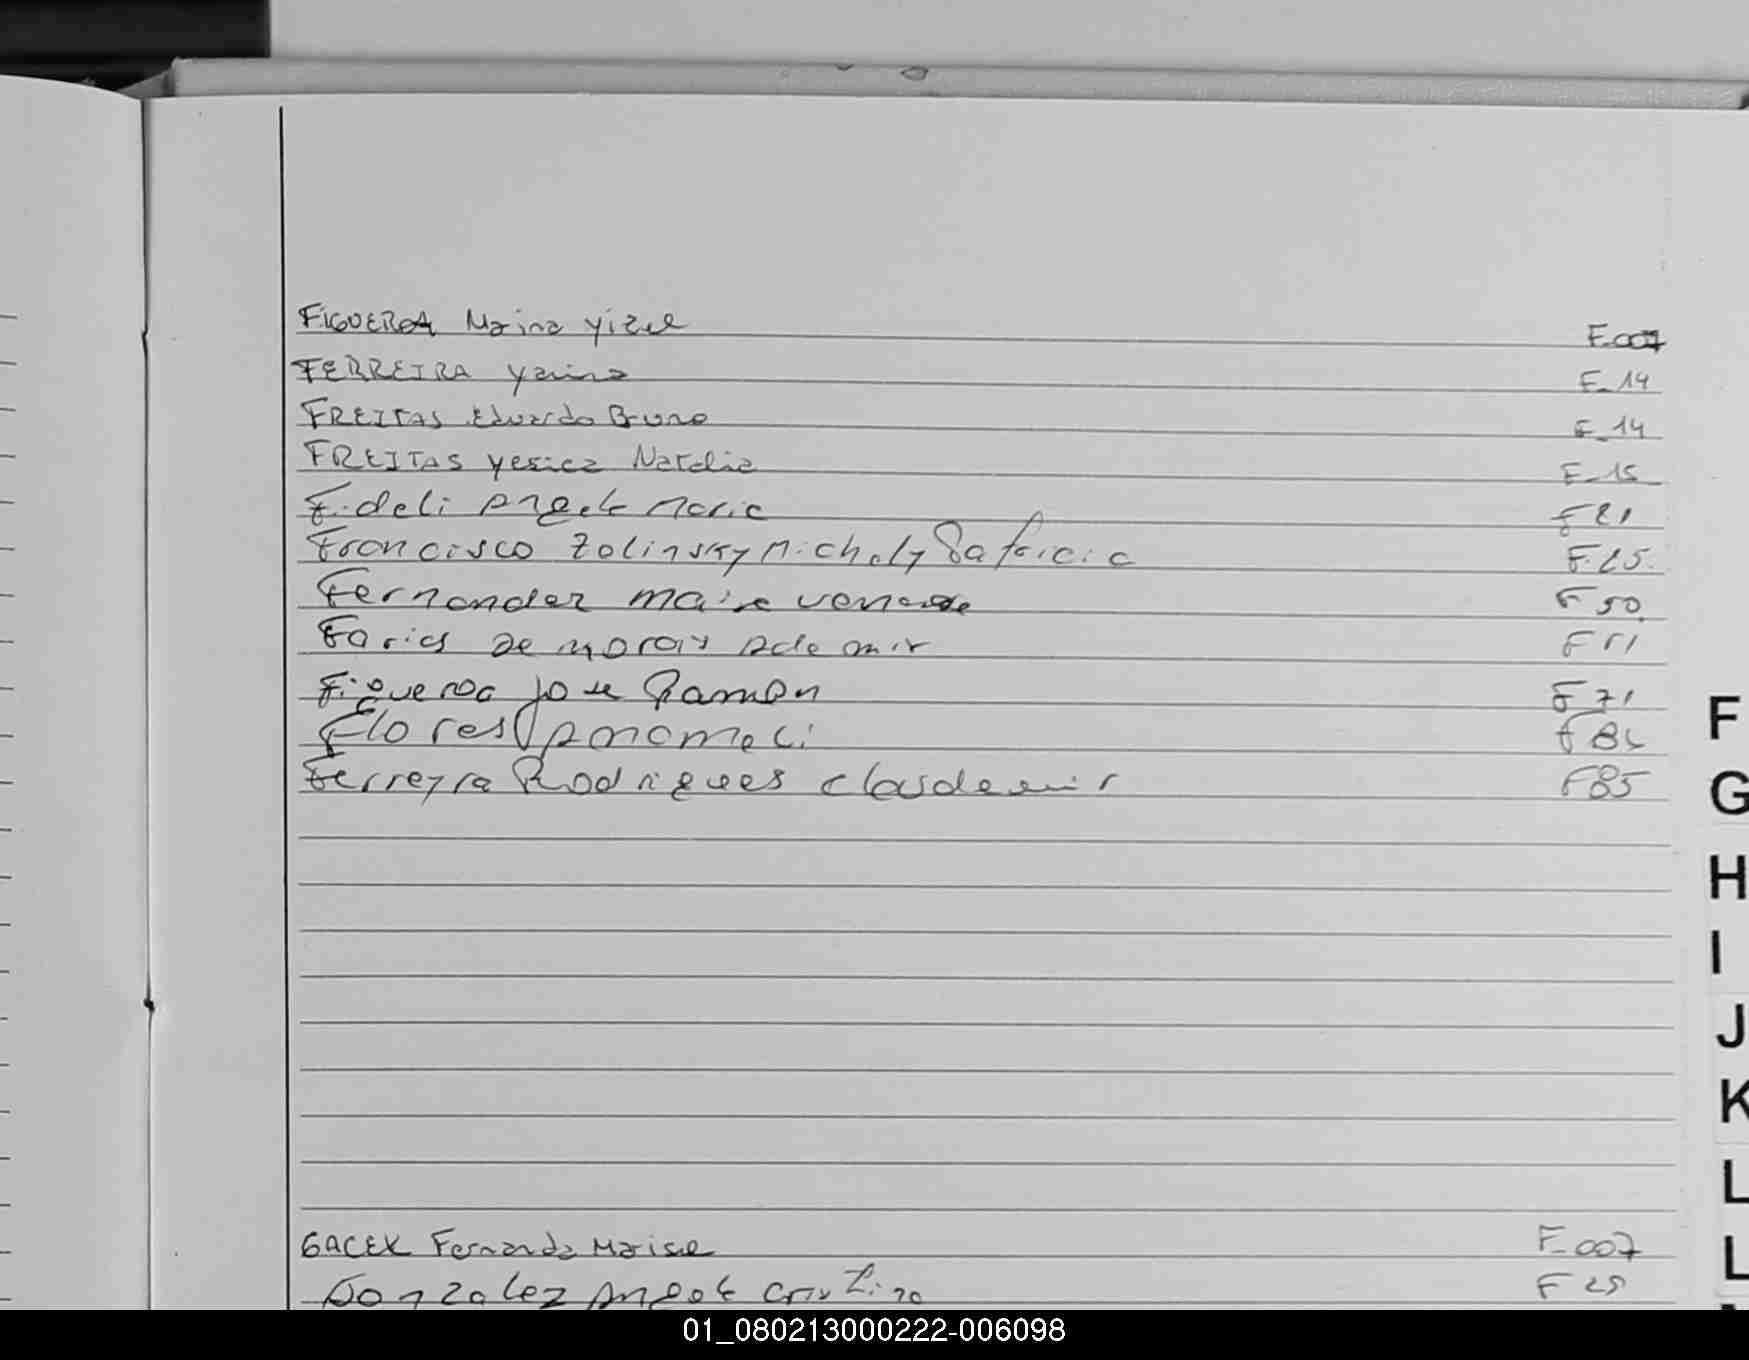 FIGUEROA Maina Yizel F-007
FERREIRA Yanina F-14
FREITAS Eduardo Bruno F-14
FREITAS Yesica Natalia F-15
Fideli Angela Maria F 21
Francisco Zolinsky Michely Patricia F.25.
Fernandez F 50
Farias De Morais Ademir F 51
Figueroa Jose Ramon F 71
Flores F 84
Ferreyra Rodrigues Claudemir F85
GACEK Fernanda Marisel F-007
Gonzalez Angela Cristina F 25
F
G
H
I
J
K
L
L
01_080213000222-006098